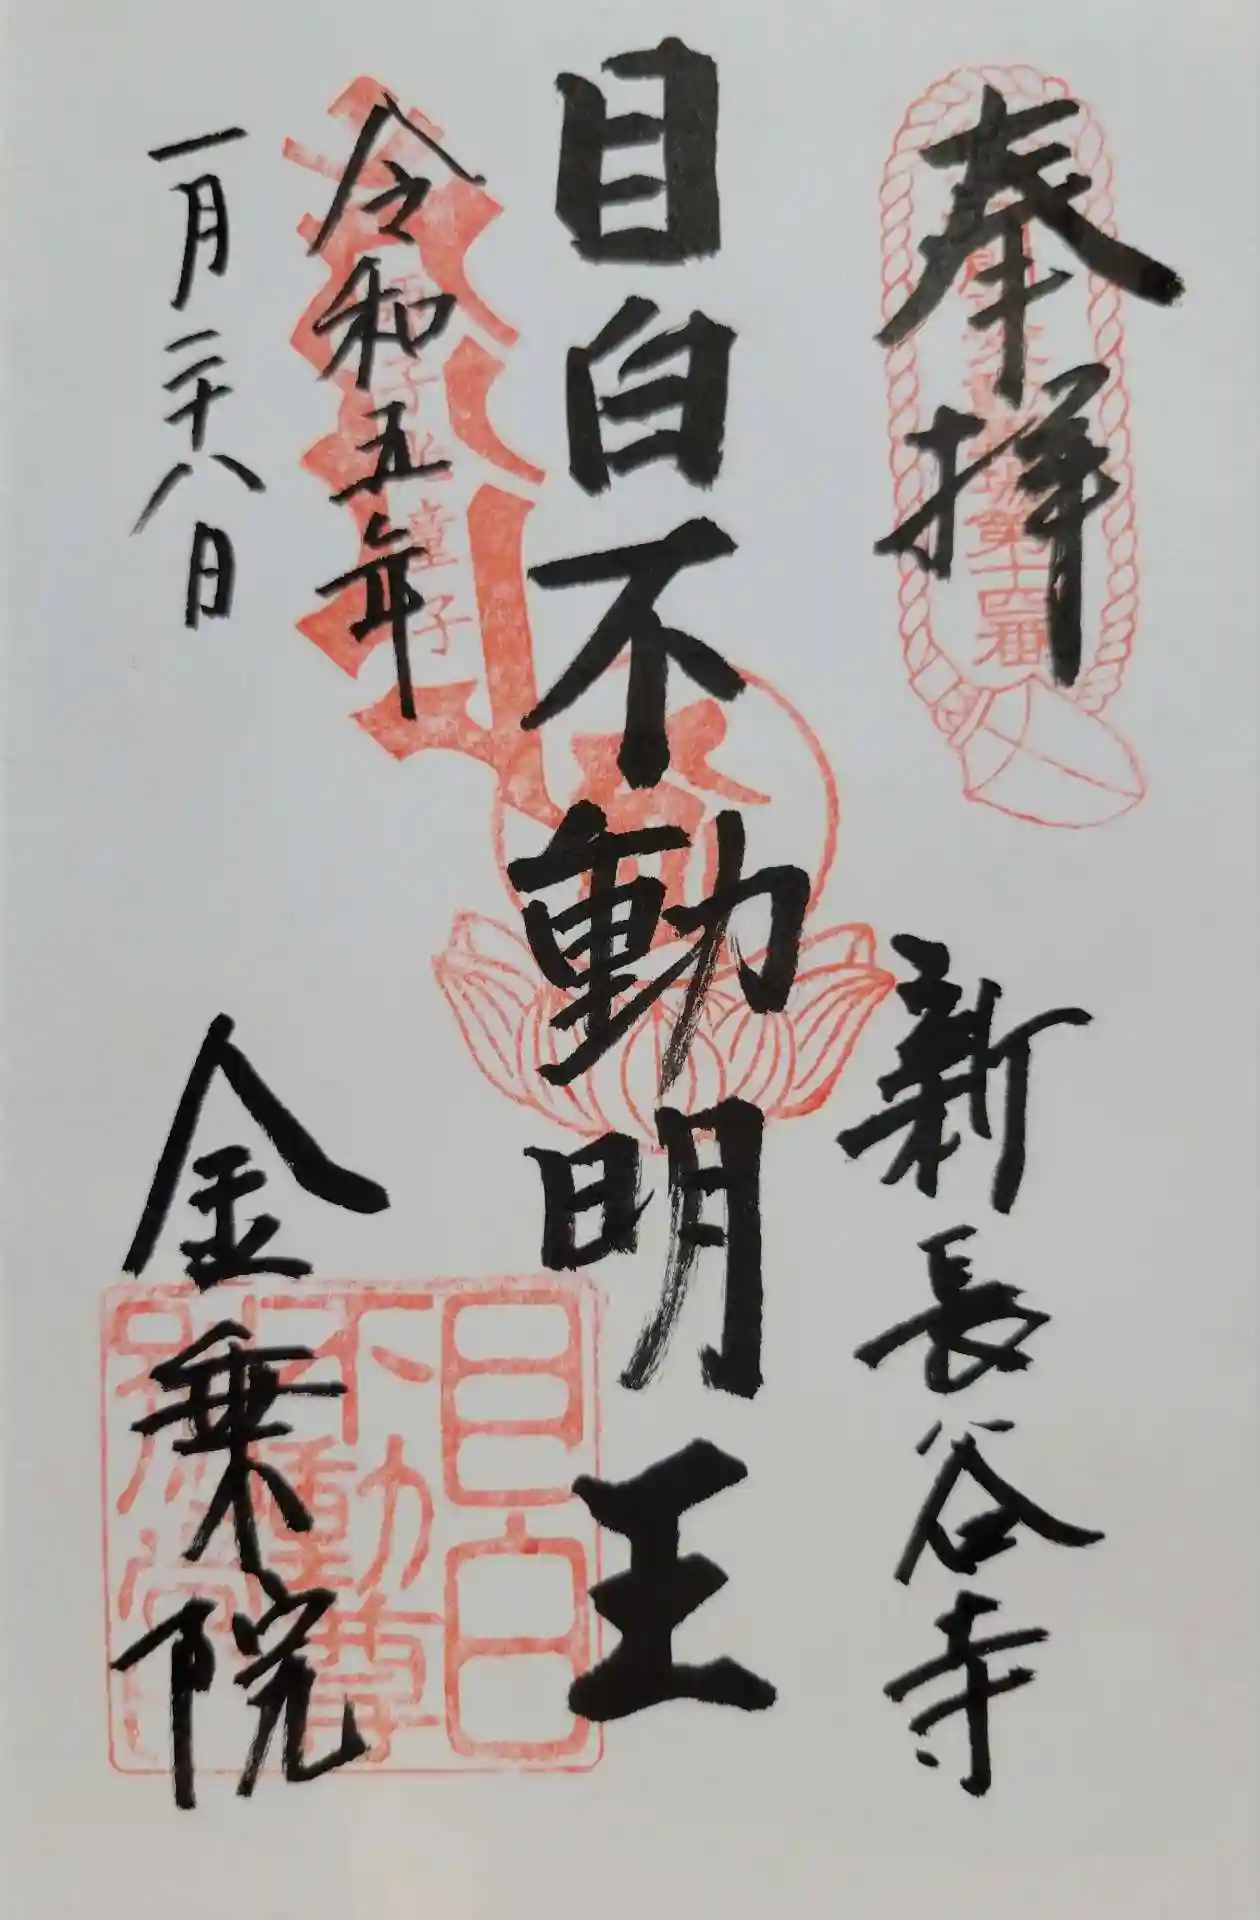 奉拝
第十四番
新長谷寺
目白不動明王
令和五年
童子
一月二十八日
金乗院
目白
不動尊